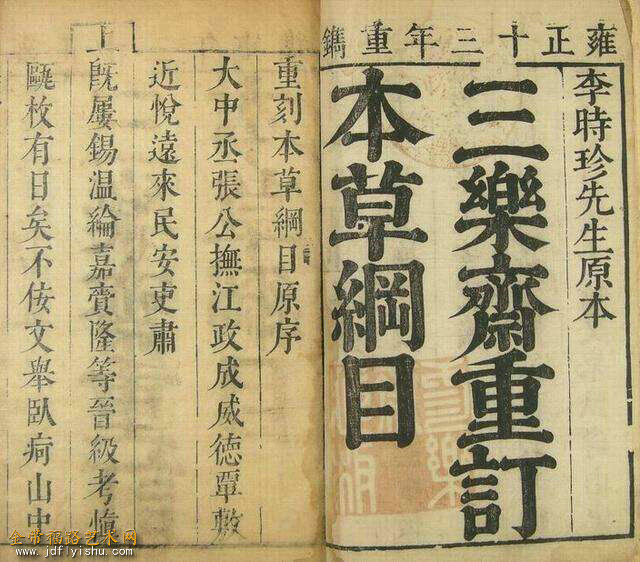 雍正十三年重鐫
李時珍先生原本
三樂齋重訂
本草綱目
重刻本草綱目原序
大中丞張公撫江政成威德覃敷
近悅遠來民安吏肅
上
既屢錫溫綸嘉賚隆等晉級考愼
甌枚有日矣不佞文舉臥疴山中
金帝稻路艺术网
www.jdflyishu.com